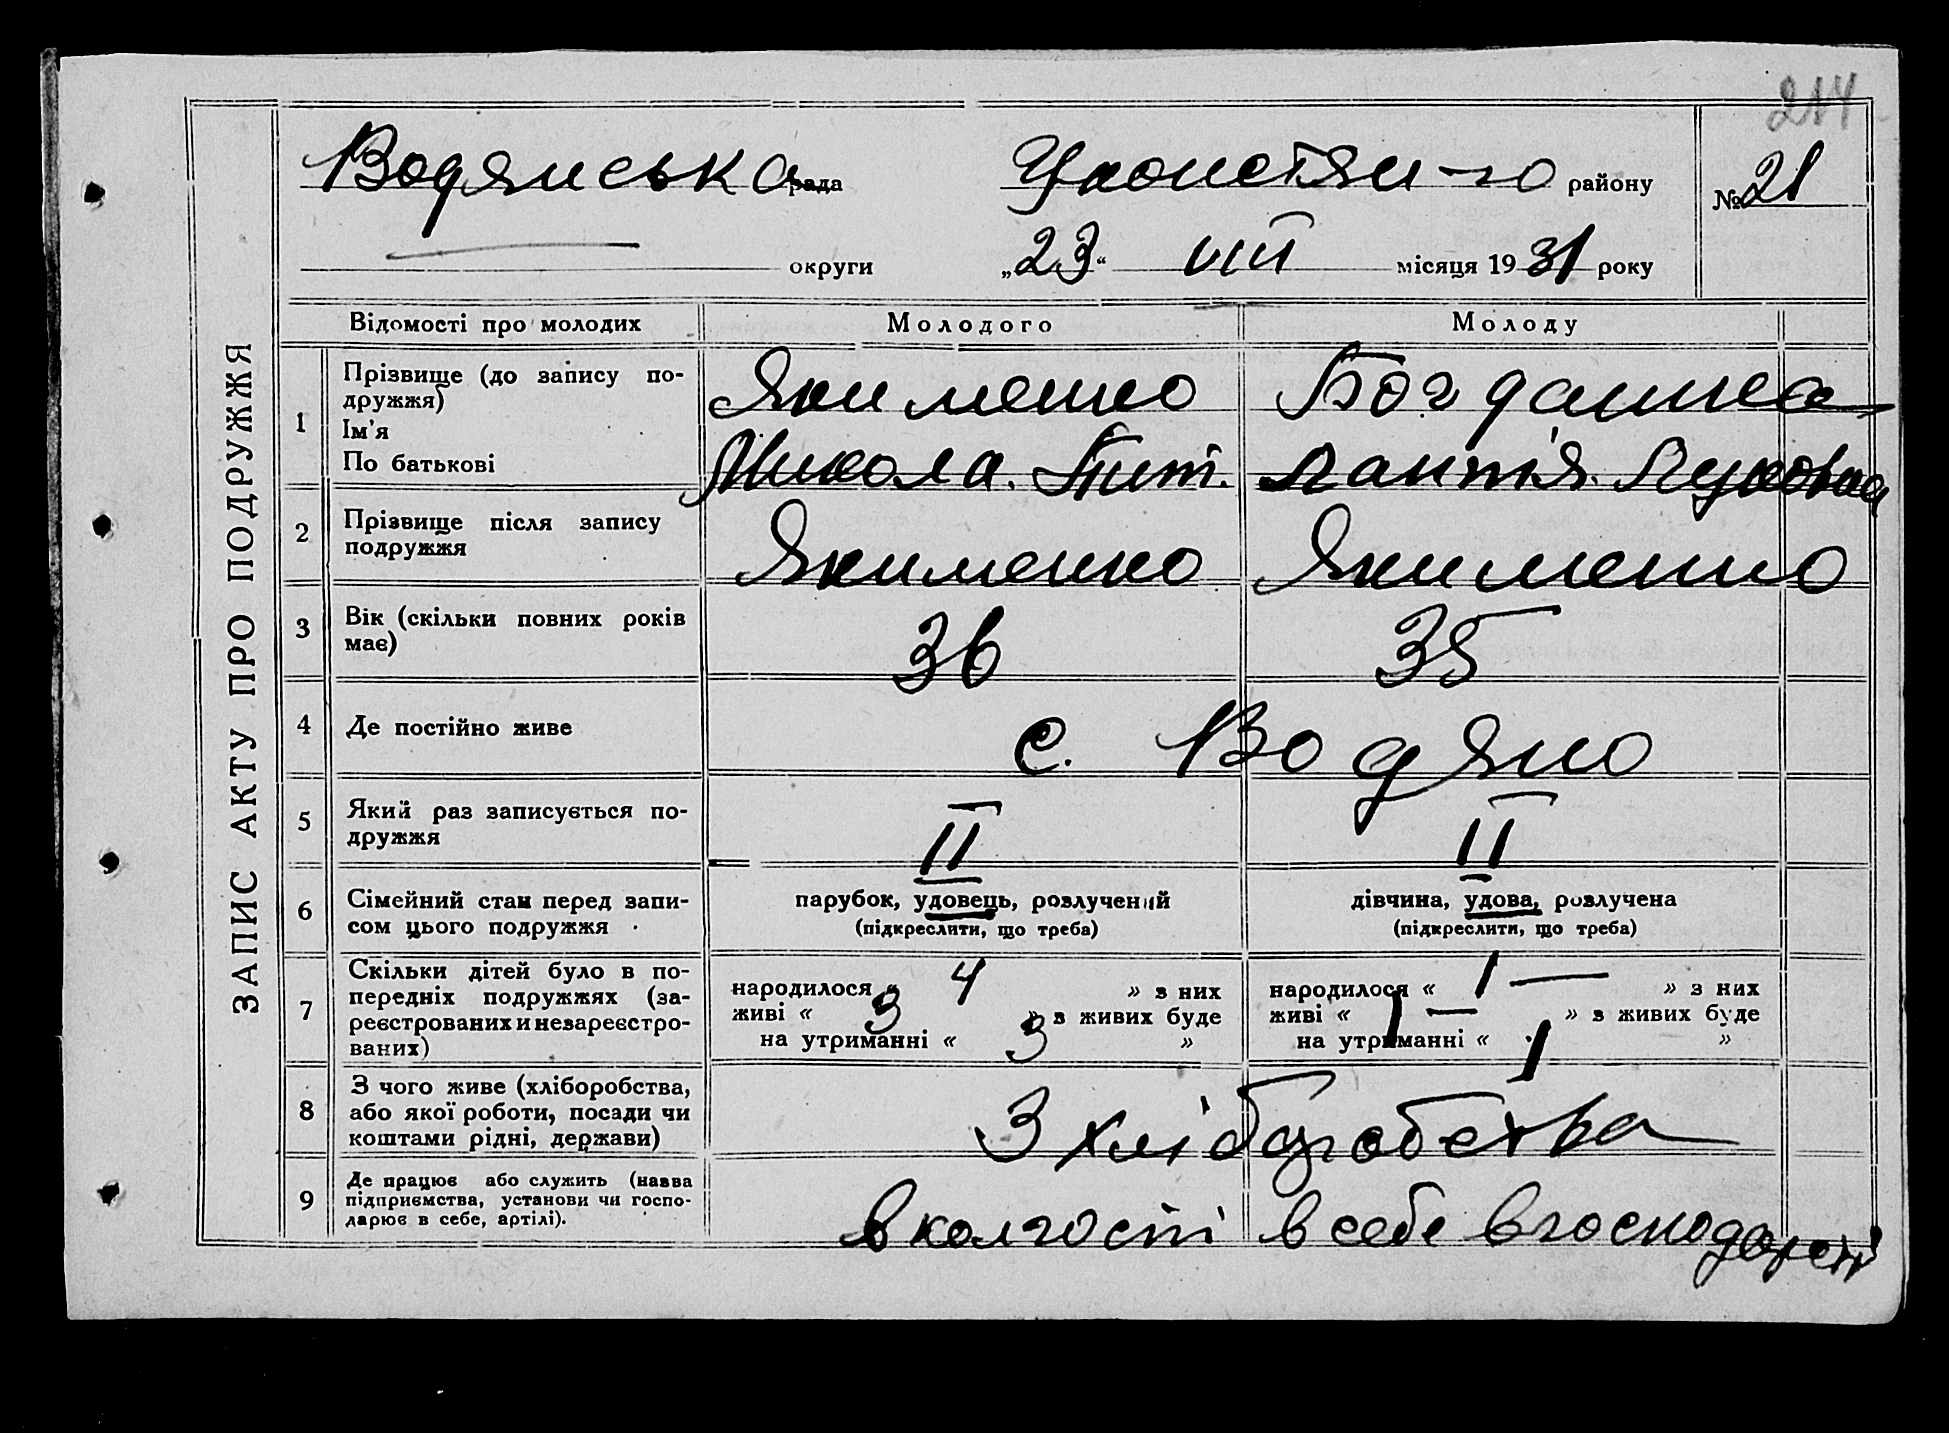 214
Водянська рада Уконстян-го району №21
округи „23“ VIII місяця 1931 року
ЗАПИС АКТУ ПРО ПОДРУЖЖЯ
Відомості про молодих Молодого Молоду
1 Прізвище (до запису по-
дружжя) Якименко Богданка
Ім'я
По батькові Микола Тит. Лукова
2 Прізвище після запису
подружжя Якименко Якименко
3 Вік (скільки повних років
має) 36 35
4 Де постійно живе с. Водяно
5 Який раз записується по-
дружжя II II
6 Сімейний стан перед запи-
сом цього подружжя
парубок, удовець, розлучений
(підкреслити, що треба)
дівчина, удова, розлучена
(підкреслити, що треба)
7 Скільки дітей було в по-
передніх подружжях (за-
реєстрованих и незареєстро-
ваних)
народилося « 4 » з них
живі « 3 » з живих буде
на утриманні « 3 »
народилося « 1 — » з них
живі « 1 — » з живих буде
на утриманні « 1 »
8 З чого живе (хліборобства,
або якої роботи, посади чи
коштами рідні, держави)
З хліборобства
9 Де працює або служить (назва
підприємства, установи чи госпо-
дарює в себе, артілі).
в колгоспі в себе в господарстві